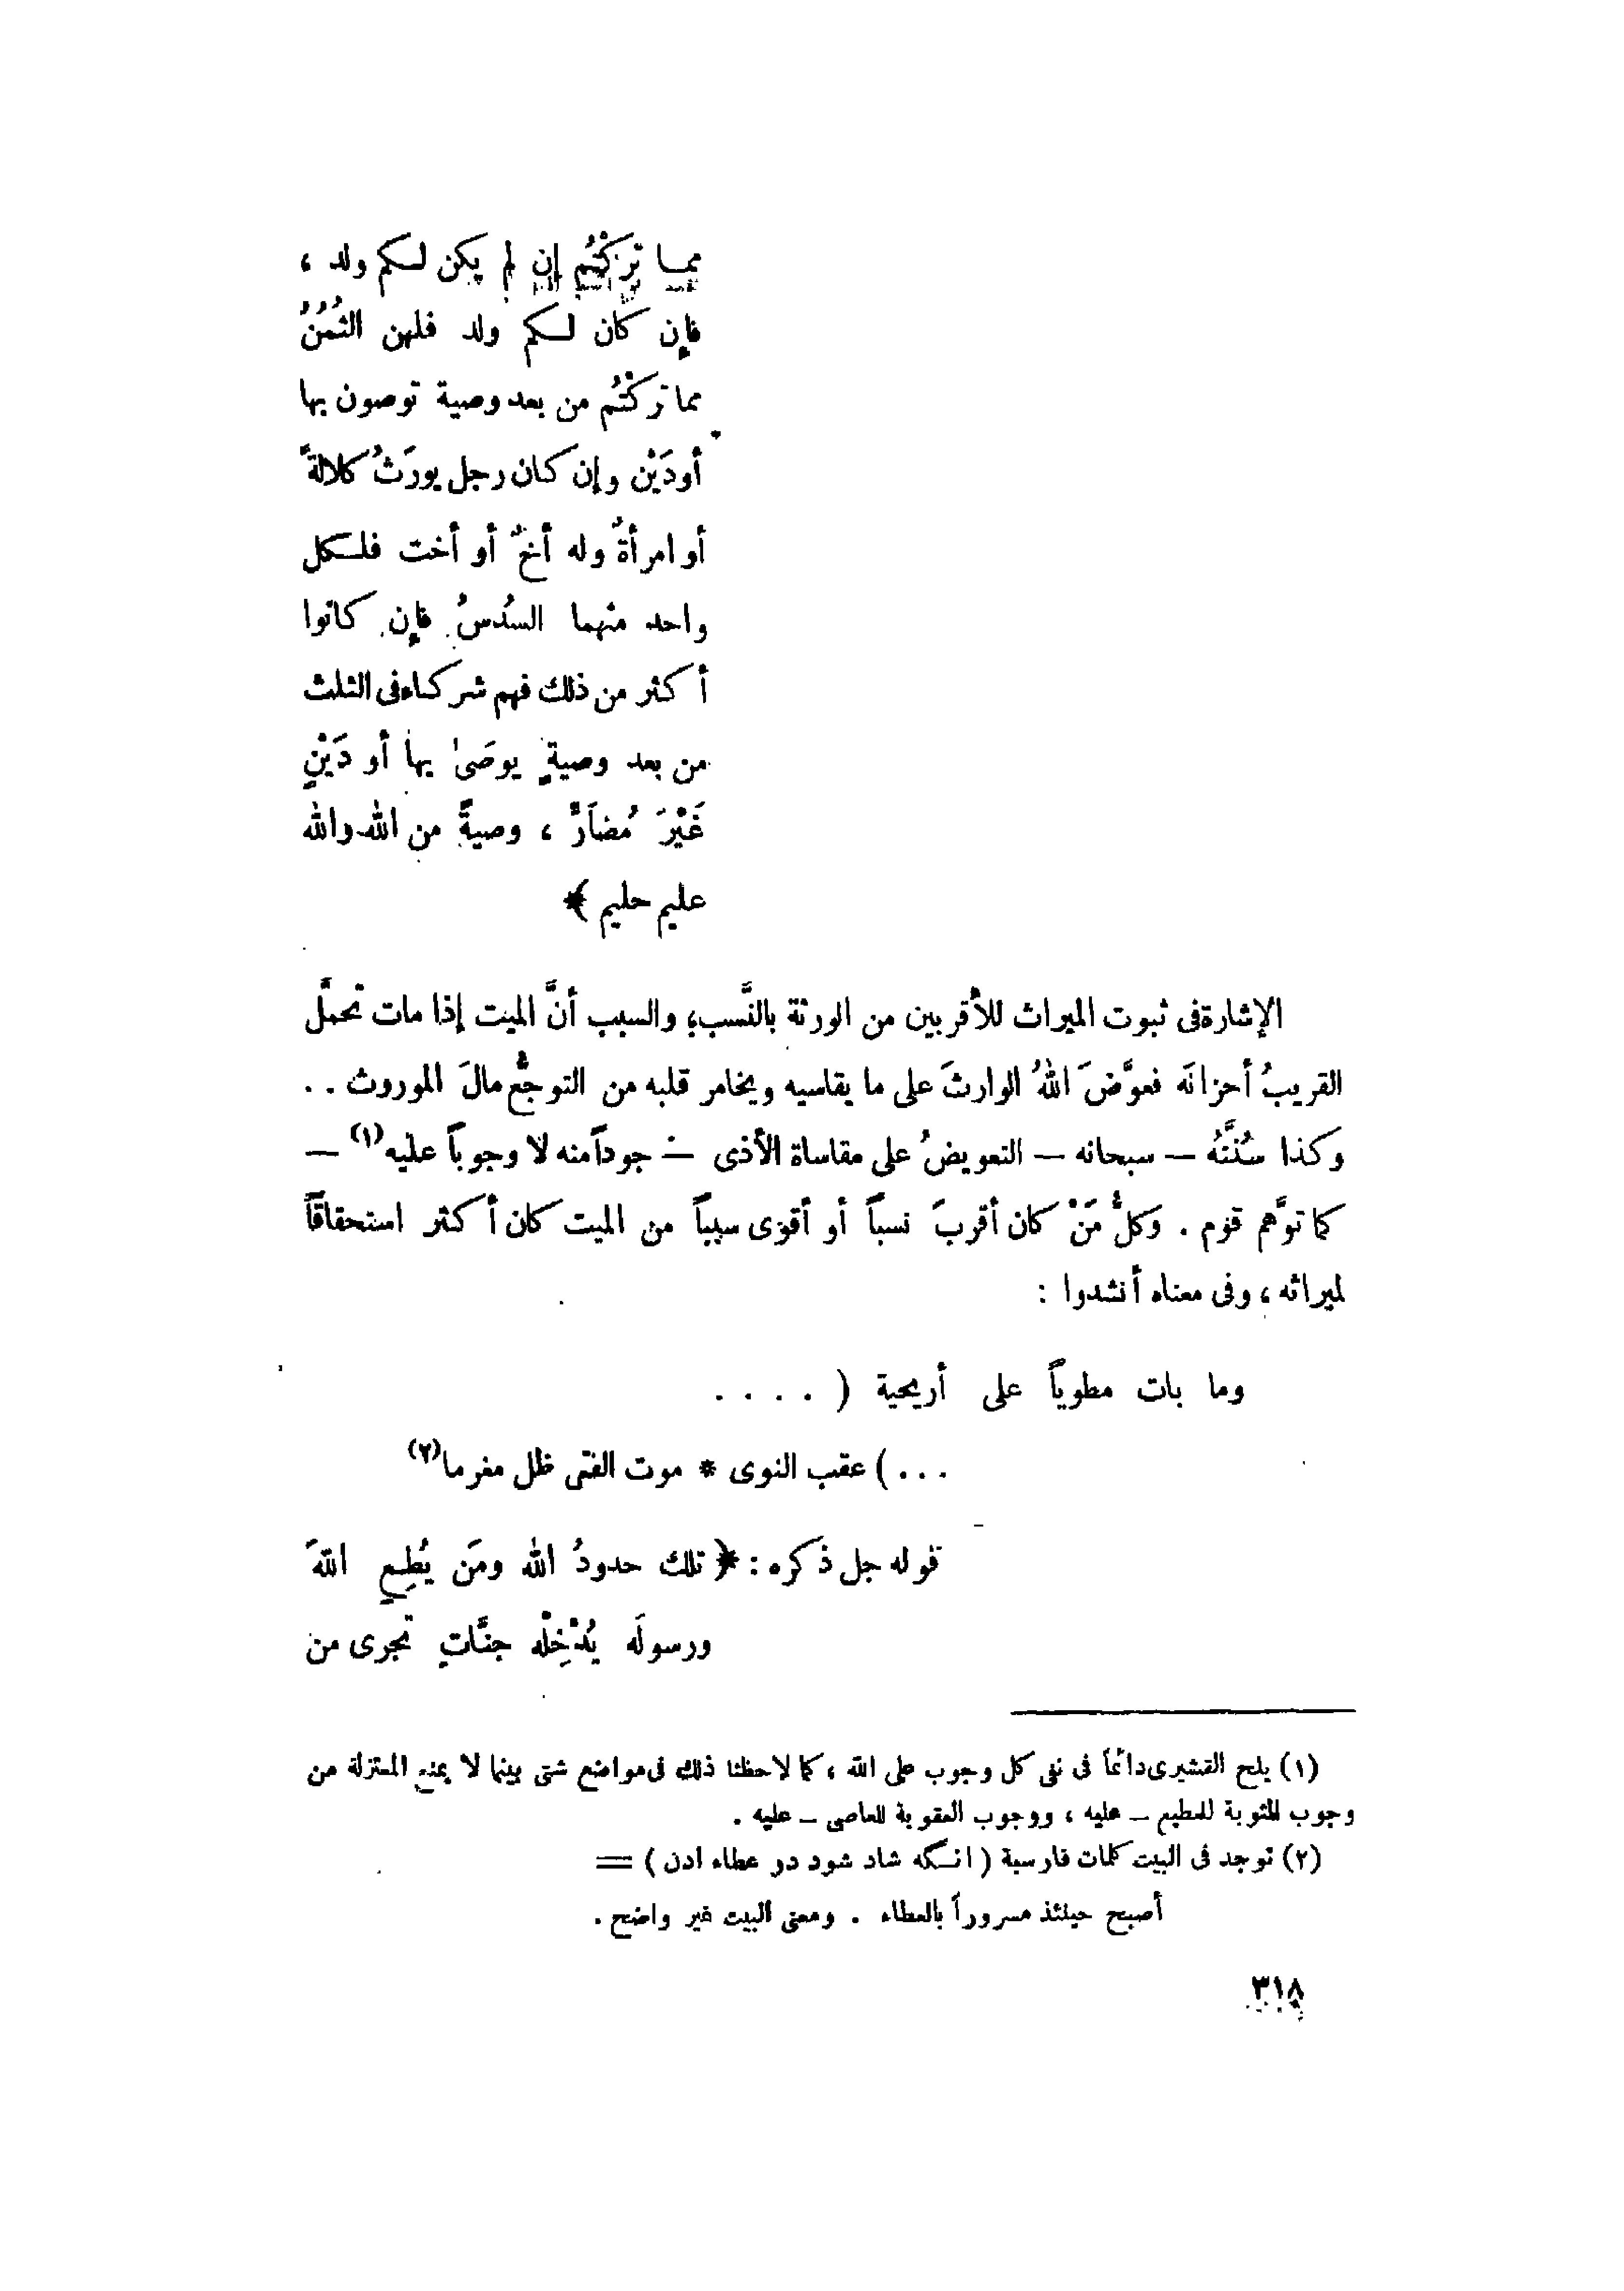 ممـا تَرَكْتُم إن لم يكن لـكم ولد ،
فإن كان لـكم ولد فلهن الثُمُنُ
مما تركْتُم من بعد وصية توصون بها
أو دَيْن وإن كان رجل يورَثُ كلالةً
أو امرأةٌ وله أخٌ أو أخت فلـكل
واحد منهما السُدسُ فإن كانوا
أكثر من ذلك فهم شركاء فى الثلث
من بعد وصيةٍ يوصَىٰ بها أو دَيْنٍ
غَيْرَ مُضَارٍّ ، وصيةً من الله والله
عليم حليم ﴾
الإشارة فى ثبوت الميراث للأقربين من الورثة بالنَّسب والسبب أنَّ الميت إذا مات تحمَّل
القريبُ أحزانَه فعوَّضَ اللهُ الوارثَ على ما يقاسيه ويخامر قلبه من التوجُّع مالَ الموروث . .
وكذا سُنَّتُه — سبحانه — التعويضُ على مقاساة الأذى — جوداً منه لا وجوباً عليه(١) —
كما توَّهم قوم . وكلُّ مَنْ كان أقربَ نسباً أو أقوى سبباً من الميت كان أكثر استحقاقاً
لميراثه ، وفى معناه أنشدوا :
وما بات مطوياً على أريحية ( . . . .
. . . ) عقب النوى * موت الفتى ظل مغرما(٢)
قوله جل ذكره : ﴿ تلك حدودُ الله ومَن يُطِعِ اللهَ
ورسولَه يُدْخِلْه جنَّاتٍ تجرى من
(١) يلح القشيرى دائماً فى نفى كل وجوب على الله ، كما لاحظنا ذلك فى مواضع شتى بينما لا يمنع المعتزلة من
وجوب المثوبة للمطيع – عليه ، ووجوب العقوبة للعاصى – عليه .
(٢) توجد فى البيت كلمات فارسية ( انـگه شاد شود در عطاء ادن ) =
أصبح حينئذ مسروراً بالعطاء . ومعنى البيت غير واضح .
٣١٨